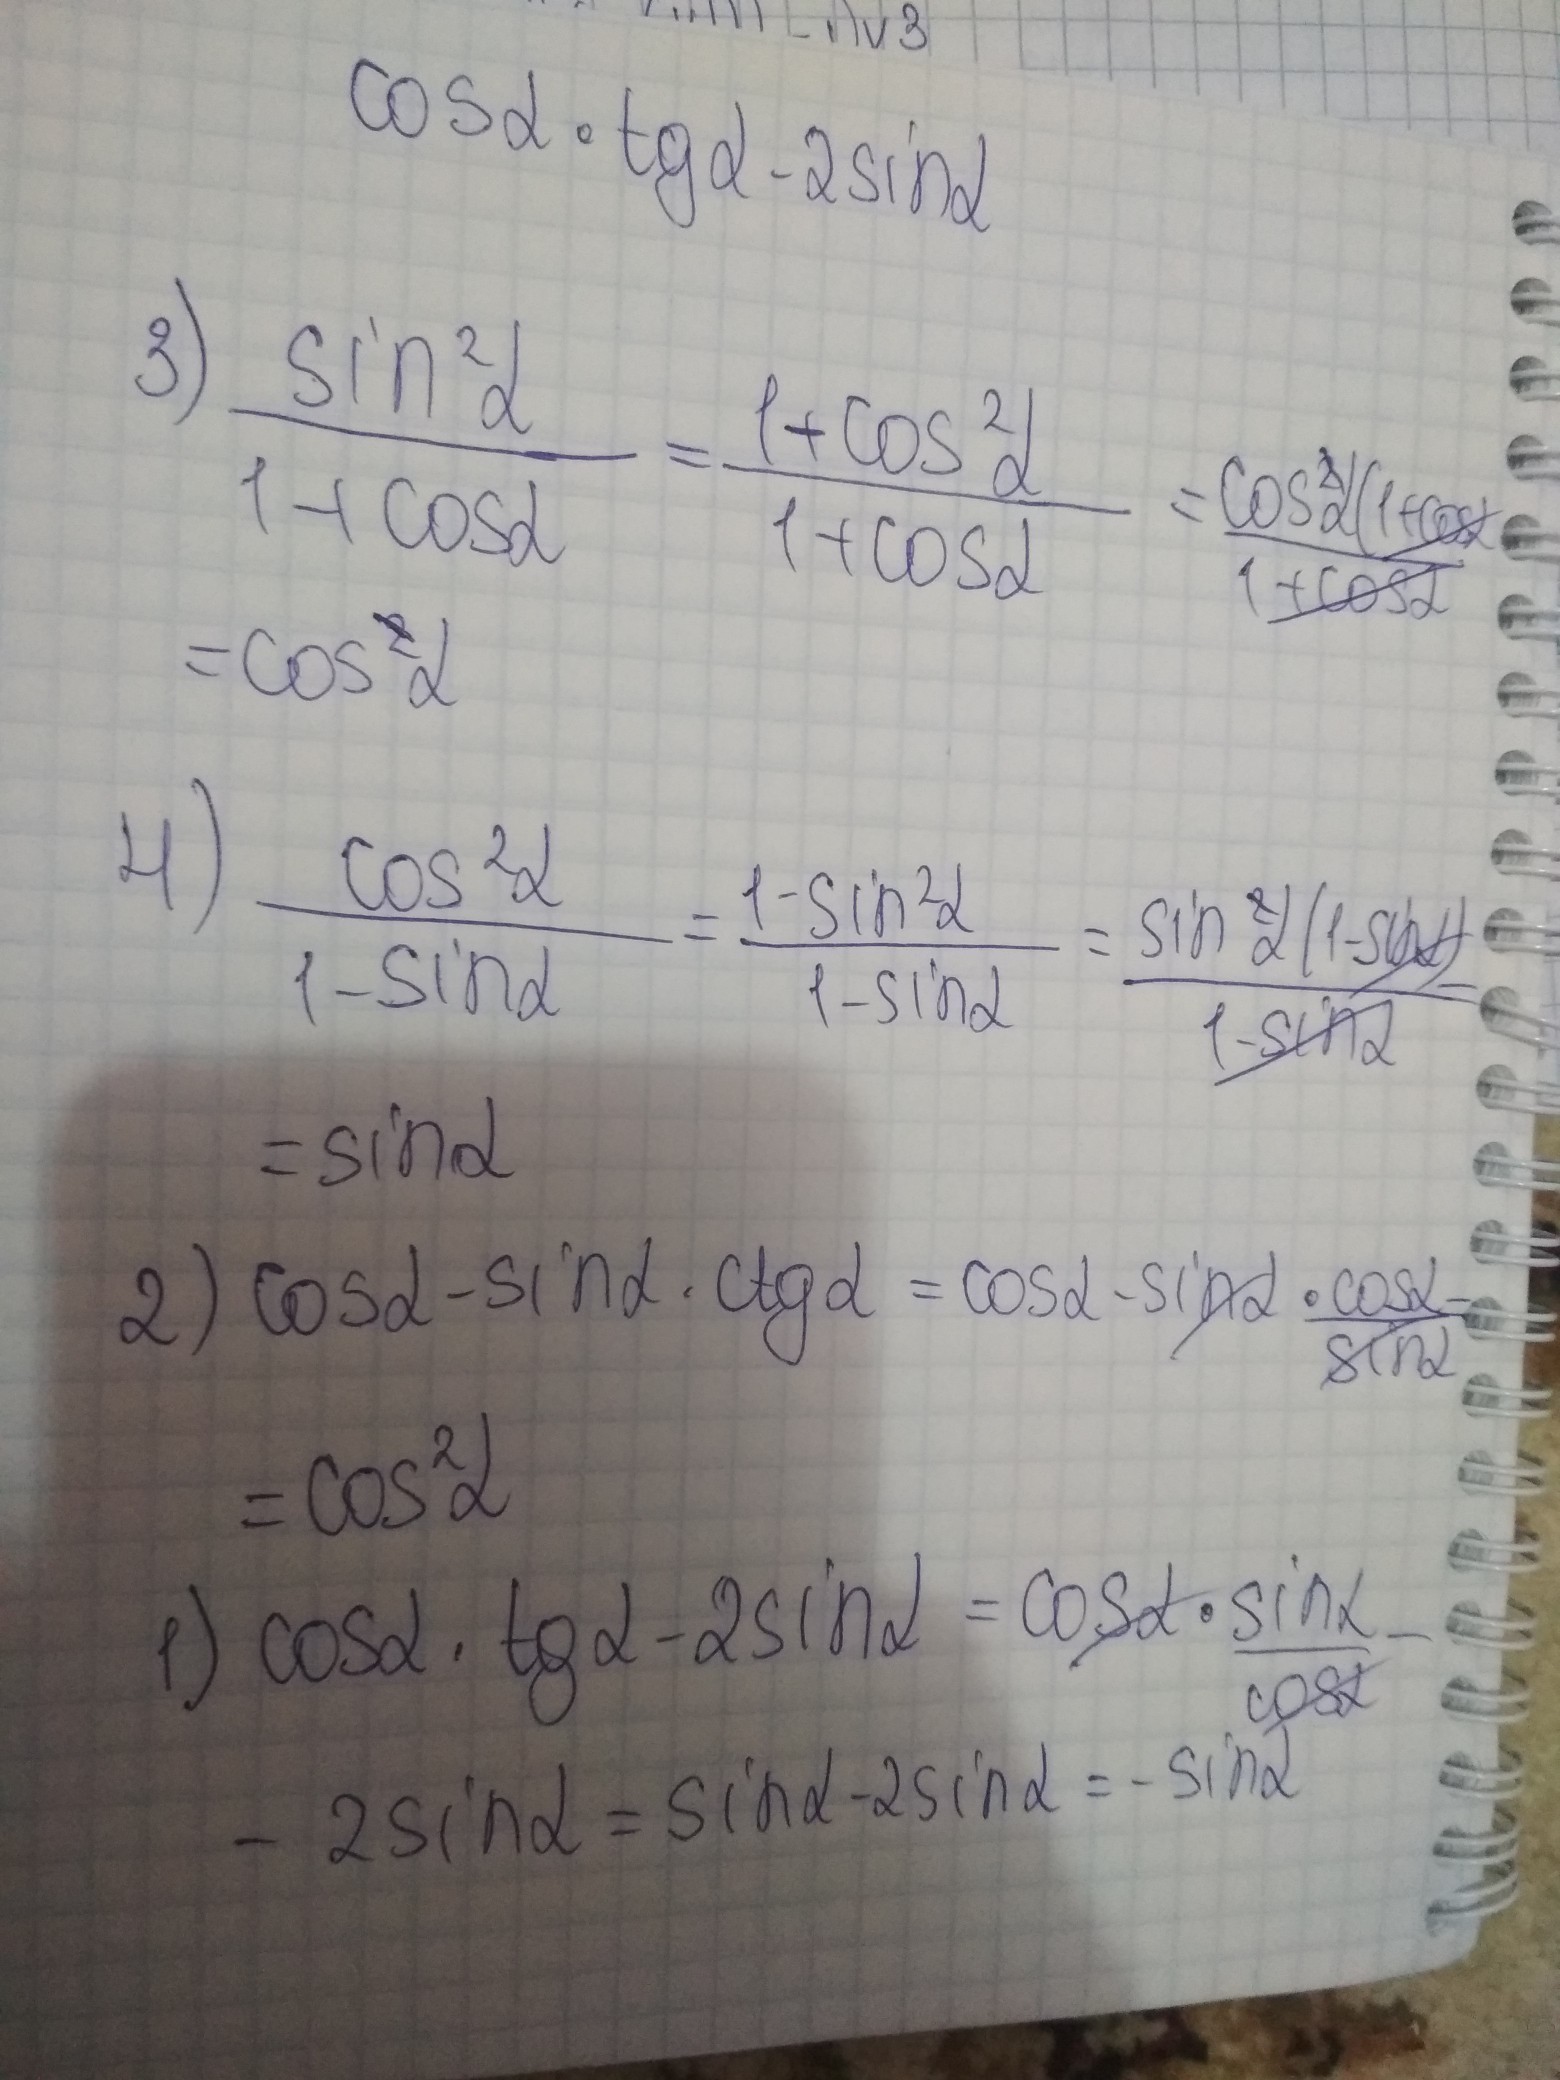 cosα · tgα - 2sinα
3) sin²α / 1 + cosα = 1 + cos²α / 1 + cosα = cos²α(1+cosα / 1 + cosα
= cos²α
4) cos²α / 1 - sinα = 1 - sin²α / 1 - sinα = sin²α(1-sinα) / 1 - sinα =
= sinα
2) cosα - sinα · ctgα = cosα - sinα · cosα / sinα =
= cos²α
1) cosα · tgα - 2sinα = cosα · sinα / cosα -
- 2sinα = sinα - 2sinα = - sinα